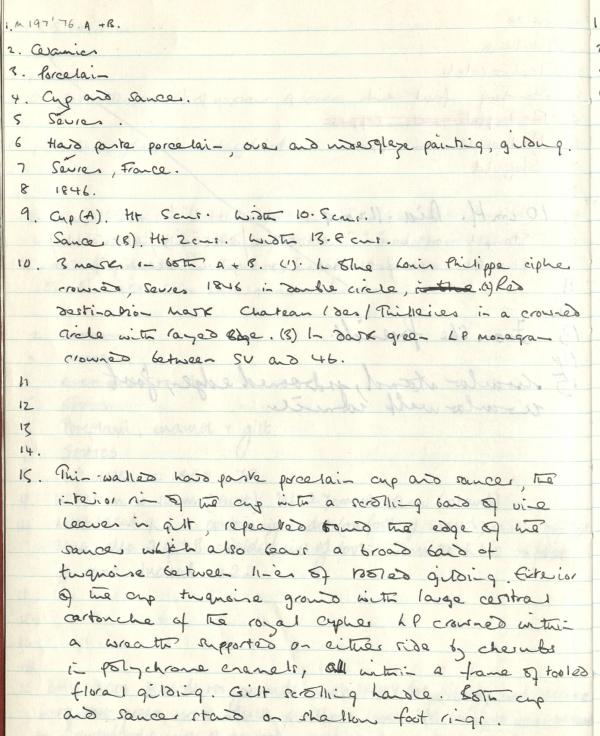 1. M 197'76. A + B.
2. Ceramics
3. Porcelain
4. Cup and saucer.
5 Sèvres.
6 Hard paste porcelain, over and underglaze painting, gilding.
7 Sèvres, France.
8 1846.
9. Cup (A). Ht 5cms. Width 10.5cms.
Saucer (B). Ht 2cms. Width 13.8cms.
10. 3 marks on both A + B. (1). In blue Louis Philippe cipher
crowned, Sevres 1846 in double circle, (2) Red
destination mark Chateau /des/ Thilleires in a crowned
circle with rayed edge. (3) In dark green LP monogram
crowned between SV and 46.
11
12
13
14.
15. Thin-walled hard paste porcelain cup and saucer, the
interior rim of the cup with a scrolling band of vine
leaves in gilt repeated round the edge of the
saucer which also bears a broad band of
turquoise between lines of tooled gilding. Exterior
of the cup turquoise ground with large central
cartouche of the royal cypher LP crowned within
a wreath supported on either side by cherubs
in polychrome enamels, all within a frame of tooled
floral gilding. Gilt scrolling handle. Both cup
and saucer stand on shallow foot rings.